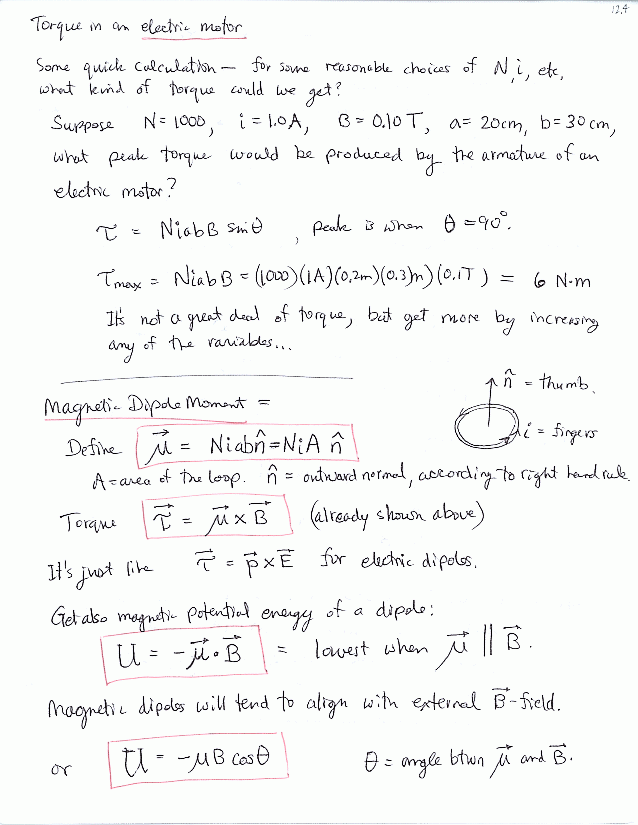 12.4
Torque in an electric motor
Some quick calculation — for some reasonable choices of N, i, etc,
what kind of torque could we get?
Suppose N = 1000, i = 1.0A, B = 0.10 T, a = 20cm, b = 30cm,
what peak torque would be produced by the armature of an
electric motor?
τ = NiabB sinθ , peak is when θ = 90°.
τmax = NiabB = (1000)(1A)(0.2m)(0.3m)(0.1T) = 6 N·m
It's not a great deal of torque, but get more by increasing
any of the variables...
Magnetic Dipole Moment =
n̂ = thumb.
i = fingers
Define μ⃗ = Niabn̂ = NiA n̂
A = area of the loop. n̂ = outward normal, according to right hand rule.
Torque τ⃗ = μ⃗ × B⃗ (already shown above)
It's just like τ⃗ = p⃗ × E⃗ for electric dipoles.
Get also magnetic potential energy of a dipole:
U = -μ⃗ • B⃗ = lowest when μ⃗ || B⃗.
Magnetic dipoles will tend to align with external B⃗-field.
or U = -μB cosθ θ = angle btwn μ⃗ and B⃗.